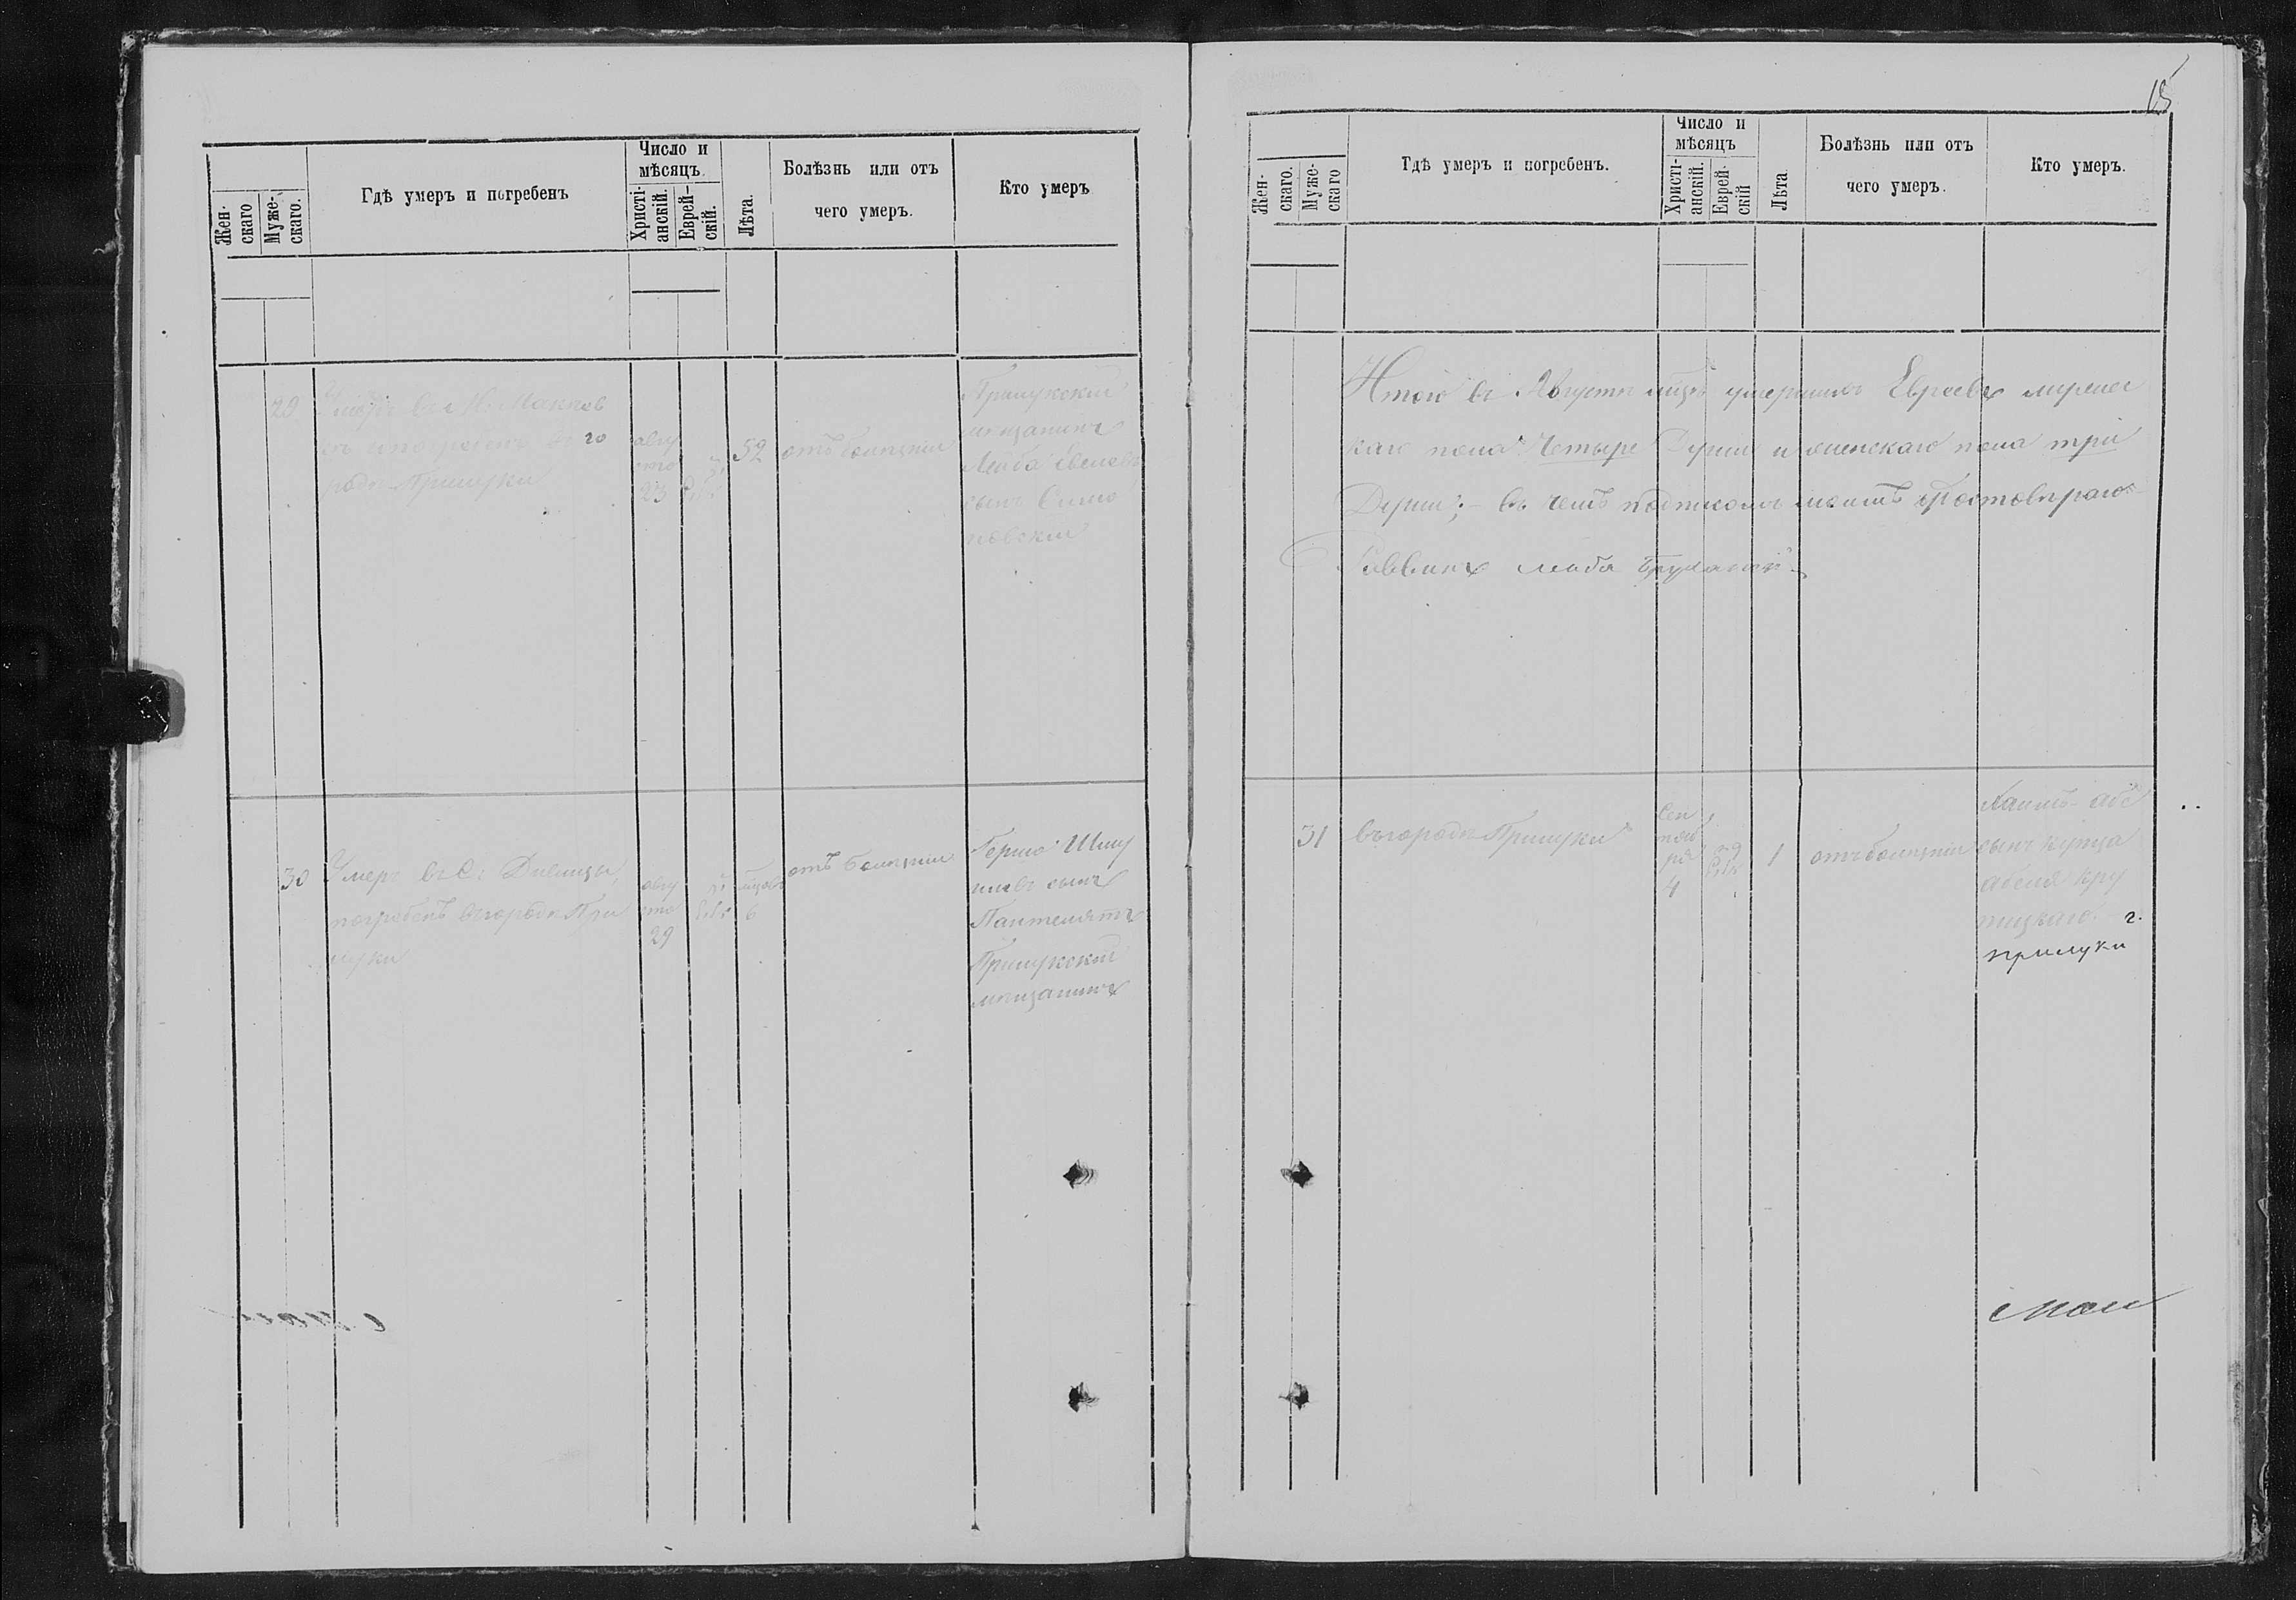 15
Жен-
скаго
Муже-
скаго.
Гдѣ умеръ и погребенъ
Число и
мѣсяцъ.
Христі-
анскій.
Еврей-
скій.
Лѣта.
Болѣзнь или отъ
чего умеръ.
Кто умеръ
29
Умеръ въ
и погребенъ въ го
родѣ Прилуки
авгу
ста
23
52
отъ болѣзни
Прилукскій
мѣщанинъ
Лейба
сынъ Симо
новскій
30
Умеръ въ с. Дѣвицы,
погребенъ въ городѣ При
луки
авгу
ста
29
6
отъ болѣзни
Герцо Шму
илов сынъ
Пантелятъ
Прилукскій
мѣщанинъ
Жен-
скаго.
Муже-
скаго
Гдѣ умеръ и погребенъ.
Число и
мѣсяцъ
Христі-
анскій.
Еврей-
скій
Лѣта
Болѣзнь или отъ
чего умеръ.
Кто умеръ.
Итого въ Августѣ мцѣ умершихъ Евреевъ мужес
каго пола Четыре Души и женскаго пола три
Души; – въ чемъ подписомъ моимъ
Раввинъ Лейба
31
въ городѣ Прилуки
Сен
тяб
ря
4
29
1
отъ болѣзни
Хаимъ-
сынъ купца
г.
Прилуки